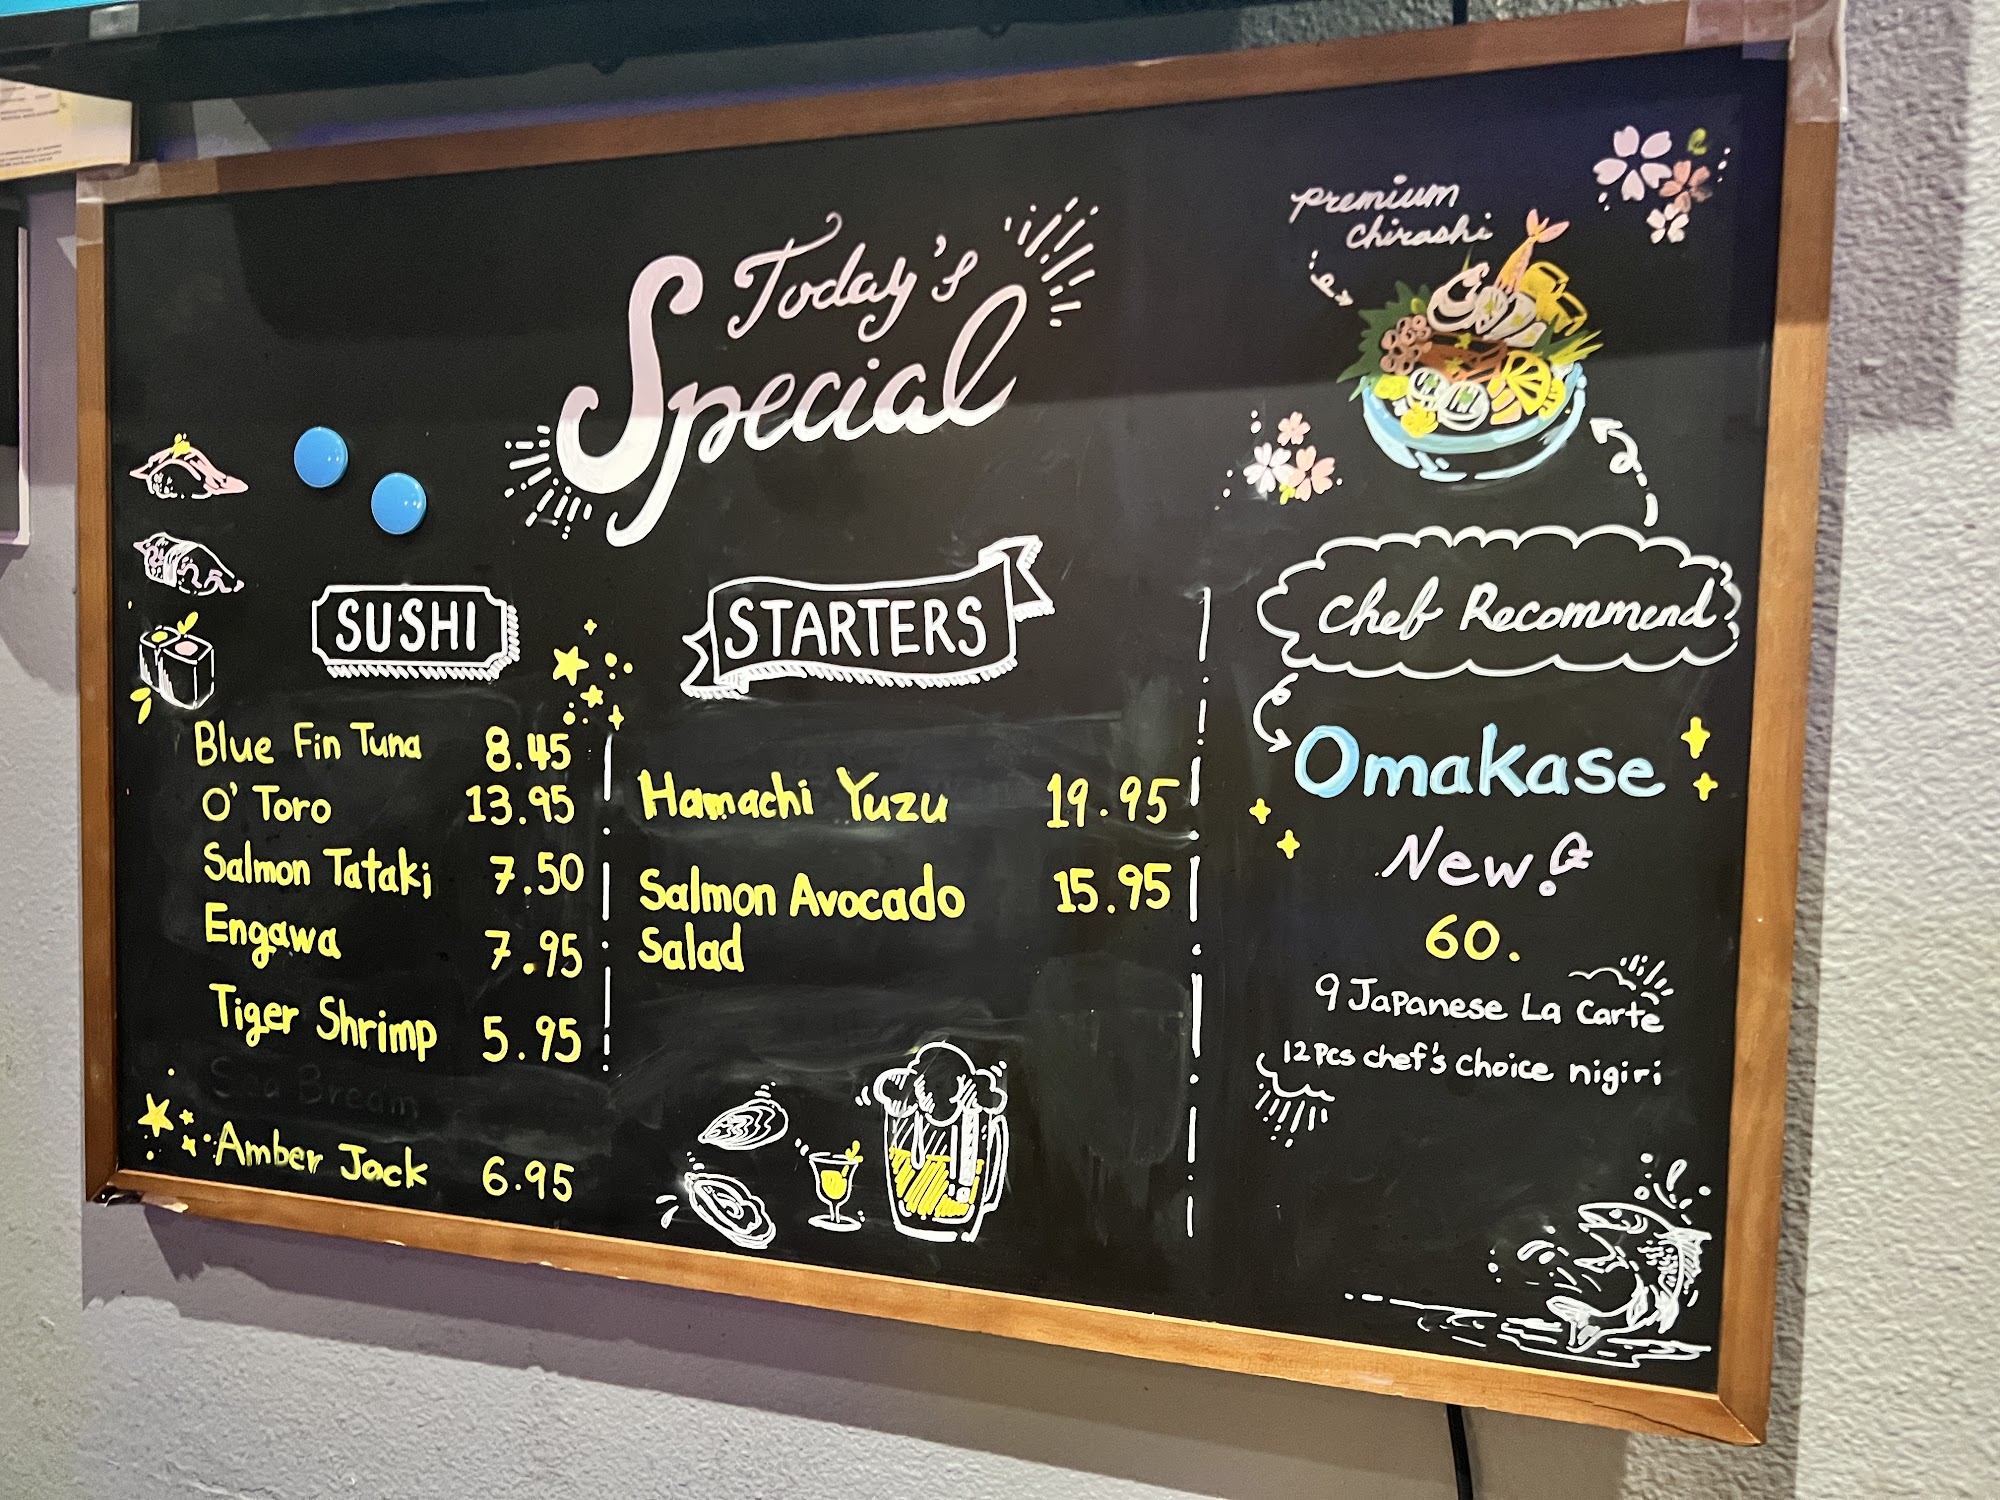 Today's
Special
SUSHI
Blue Fin Tuna 8.45
O' Toro 13.95
Salmon Tataki 7.50
Engawa 7.95
Tiger Shrimp 5.95
Sea Bream
Amber Jack 6.95
STARTERS
Hamachi Yuzu 19.95
Salmon Avocado 15.95
Salad
premium
chirashi
Chef Recommend
Omakase
New!
60.
9 Japanese La Carte
12 pcs chef's choice nigiri